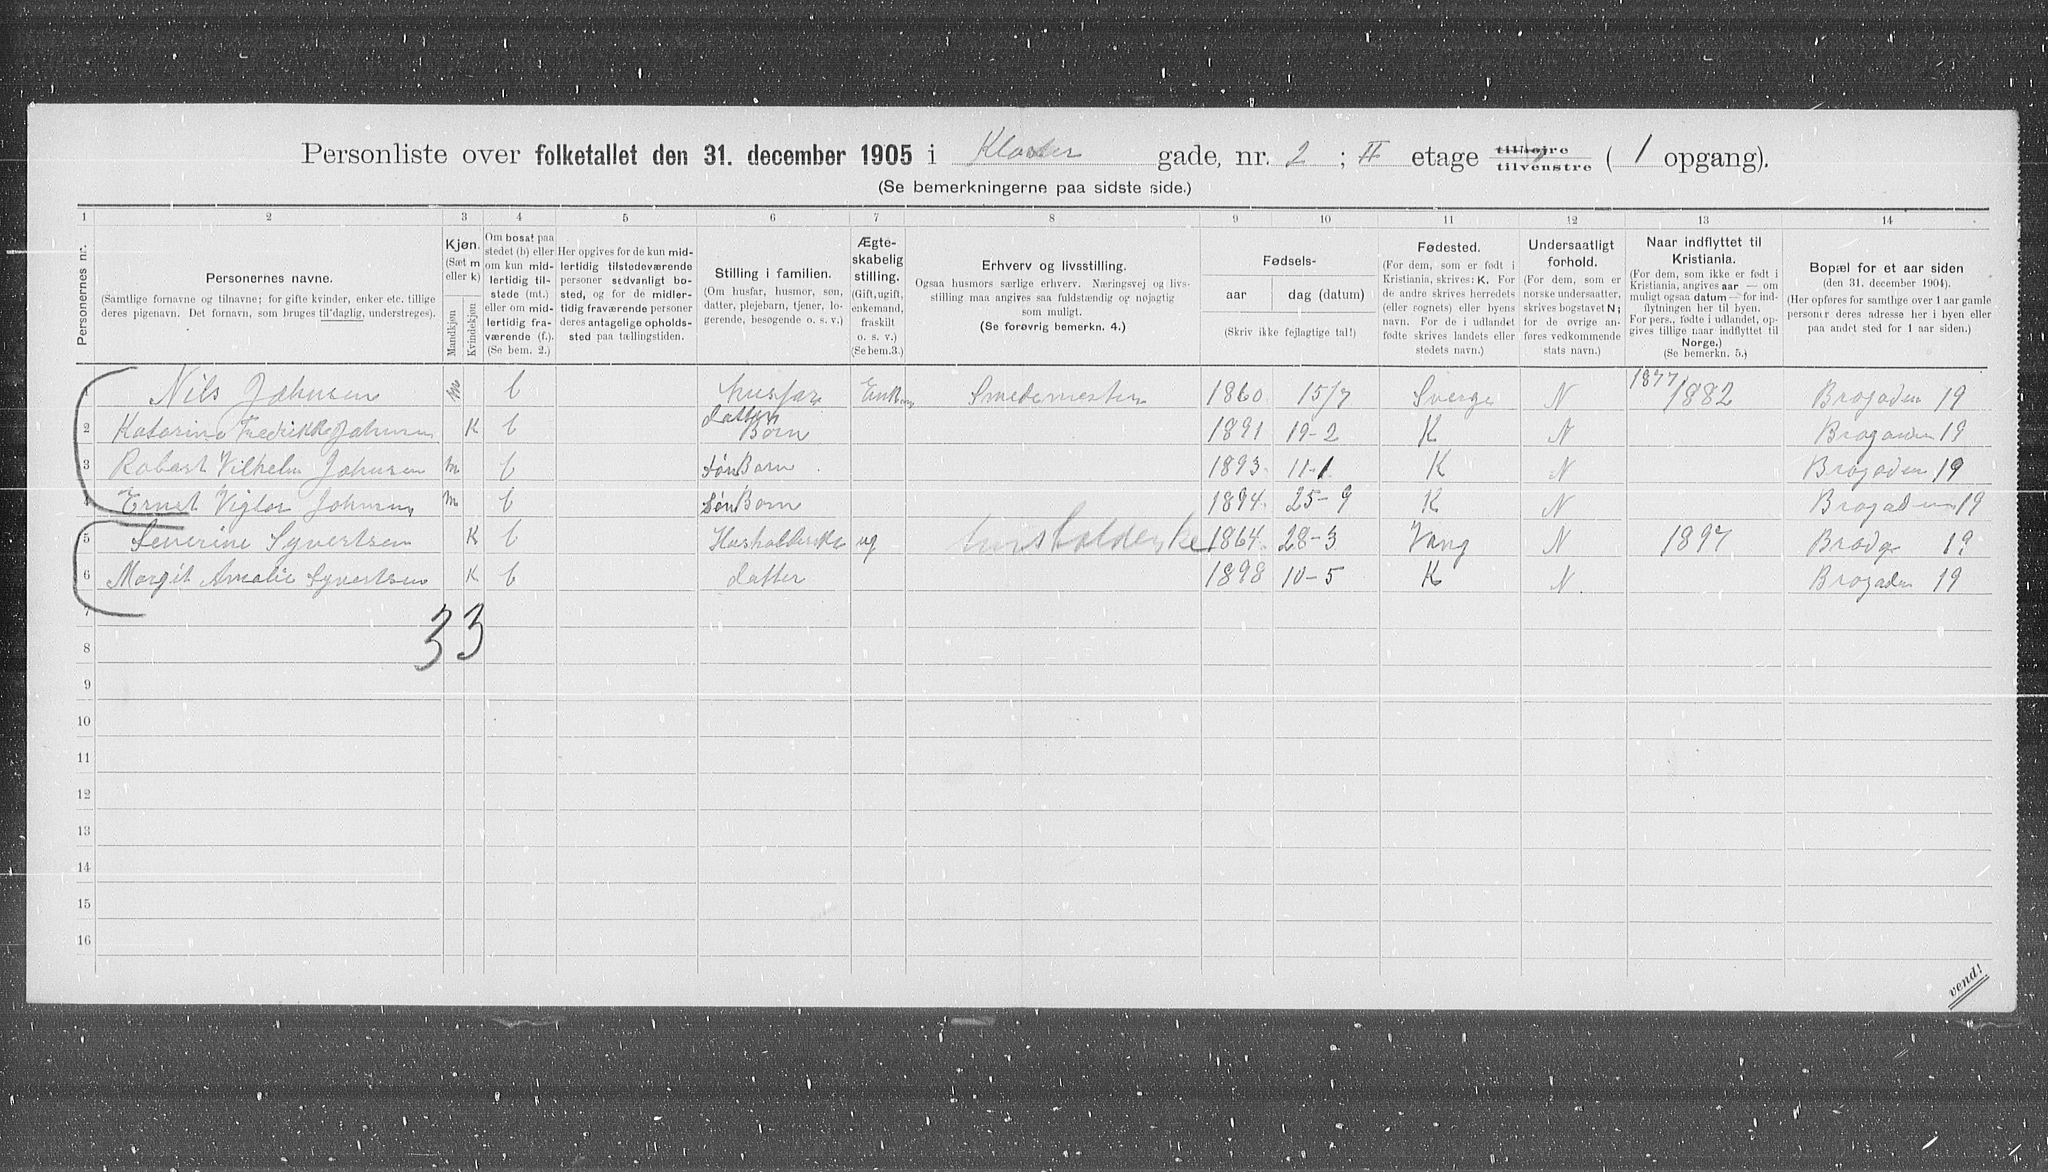 Personliste over folketallet den 31. december 1905 i Kloster gade, nr. 2 ; II etage tilhøire tilvenstre ( 1 opgang).
(Se bemerkningerne paa sidste side.)
1 2 3 4 5 6 7 8 9 10 11 12 13 14
Personernes nr.
Personernes navne.
(Samtlige fornavne og tilnavne; for gifte kvinder, enker etc. tillige
deres pigenavn. Det fornavn, som bruges til daglig, understreges).
Kjøn.
(Sæt m
eller k)
Mandkjøn
Kvindekjøn
Om bosat paa
stedet (b) eller
om kun mid-
lertidig til-
stede (mt.)
eller om mid-
lertidig fra-
værende (f.).
(Se bem. 2.)
Her opgives for de kun mid-
lertidig tilstedeværende
personer sedvanligt bo-
sted, og for de midler-
tidig fraværende personer
deres antagelige opholds-
sted paa tællingstiden.
Stilling i familien.
(Om husfar, husmor, søn,
datter, plejebarn, tjener, lo-
gerende, besøgende o. s. v.)
Ægte-
skabelig
stilling.
(Gift, ugift,
enkemand,
fraskilt
o. s. v.)
(Se bem.3.)
Erhverv og livsstilling.
Ogsaa husmors særlige erhverv. Næringsvej og livs-
stilling maa angives saa fuldstændig og nøjagtig
som muligt.
(Se forøvrig bemerkn. 4.)
Fødsels-
aar dag (datum)
(Skriv ikke fejlagtige tal!)
Fødested.
(For dem, som er født i
Kristiania, skrives: K. For
de andre skrives herredets
(eller sognets) eller byens
navn. For de i udlandet
fødte skrives landets eller
stedets navn.)
Undersaatligt
forhold.
(For dem, som er
norske undersaatter,
skrives bogstavet N;
for de øvrige an-
føres vedkommende
stats navn.)
Naar indflyttet til
Kristiania.
(For dem, som ikke er født i
Kristiania, angives aar — om
muligt ogsaa datum — for ind-
flytningen her til byen.
For pers., fødte i udlandet, op-
gives tillige naar indflyttet til
Norge.)
(Se bemerkn. 5.)
Bopæl for et aar siden
(den 31. december 1904).
(Her opføres for samtlige over 1 aar gamle
personer deres adresse her i byen eller
paa andet sted for 1 aar siden.)
1 Nils Johnsen m b husfar Enkem Smedemester 1860 15/7 Sverge N 1877 1882 Brogaden 19
2 Katarina Fredrikke Johnsen K b datter Børn 1891 19-2 K N Brogaden 19
3 Robert Vilhelm Johnsen m b søn Barn 1893 11-1 K N Brogaden 19
4 Ernst Vigtor Johnsen m b søn Barn 1894 25-9 K N Brogaden 19
5 Severine Syvertsen K b Husholderske ug husholderske 1864 28-3 Vang N 1897 Brodg 19
6 Margit Amalie Syvertsen K b datter 1898 10-5 K N. Brogaden 19
7
33
8
9
10
11
12
13
14
15
16
vend!